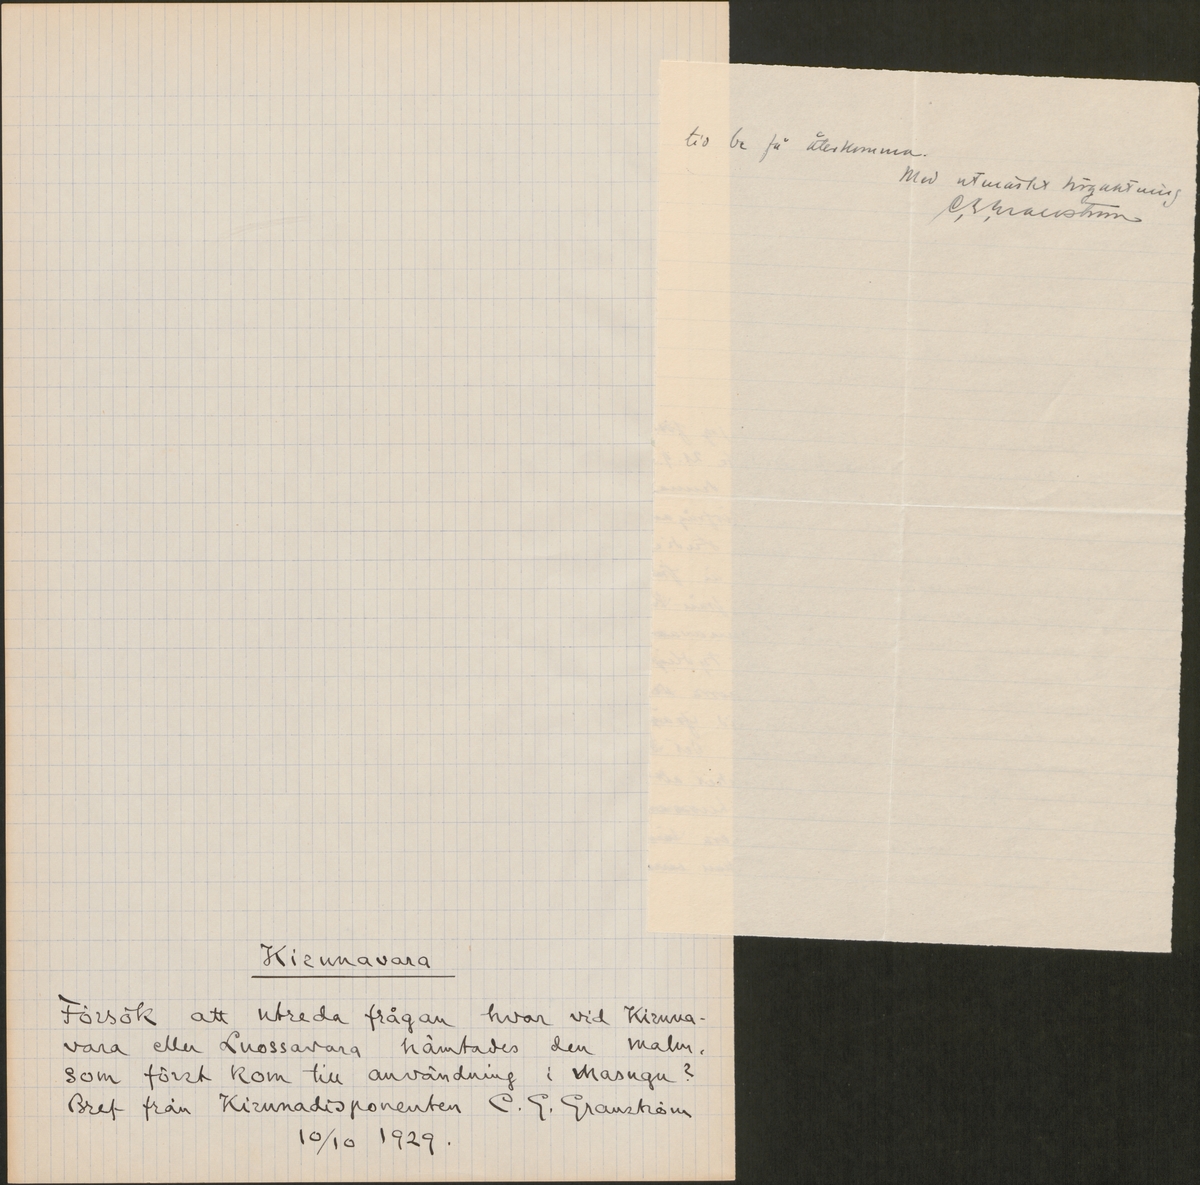 tid be få återkomma.
Med utmärkt högaktning
C.G. Granström
Kirunavara
Försök att utreda frågan hvar vid Kiruna-
vara eller Luossavara hämtades den malm,
som först kom till användning i masugn?
Bref från Kirunadisponenten C. G. Granström
10/10 1929.